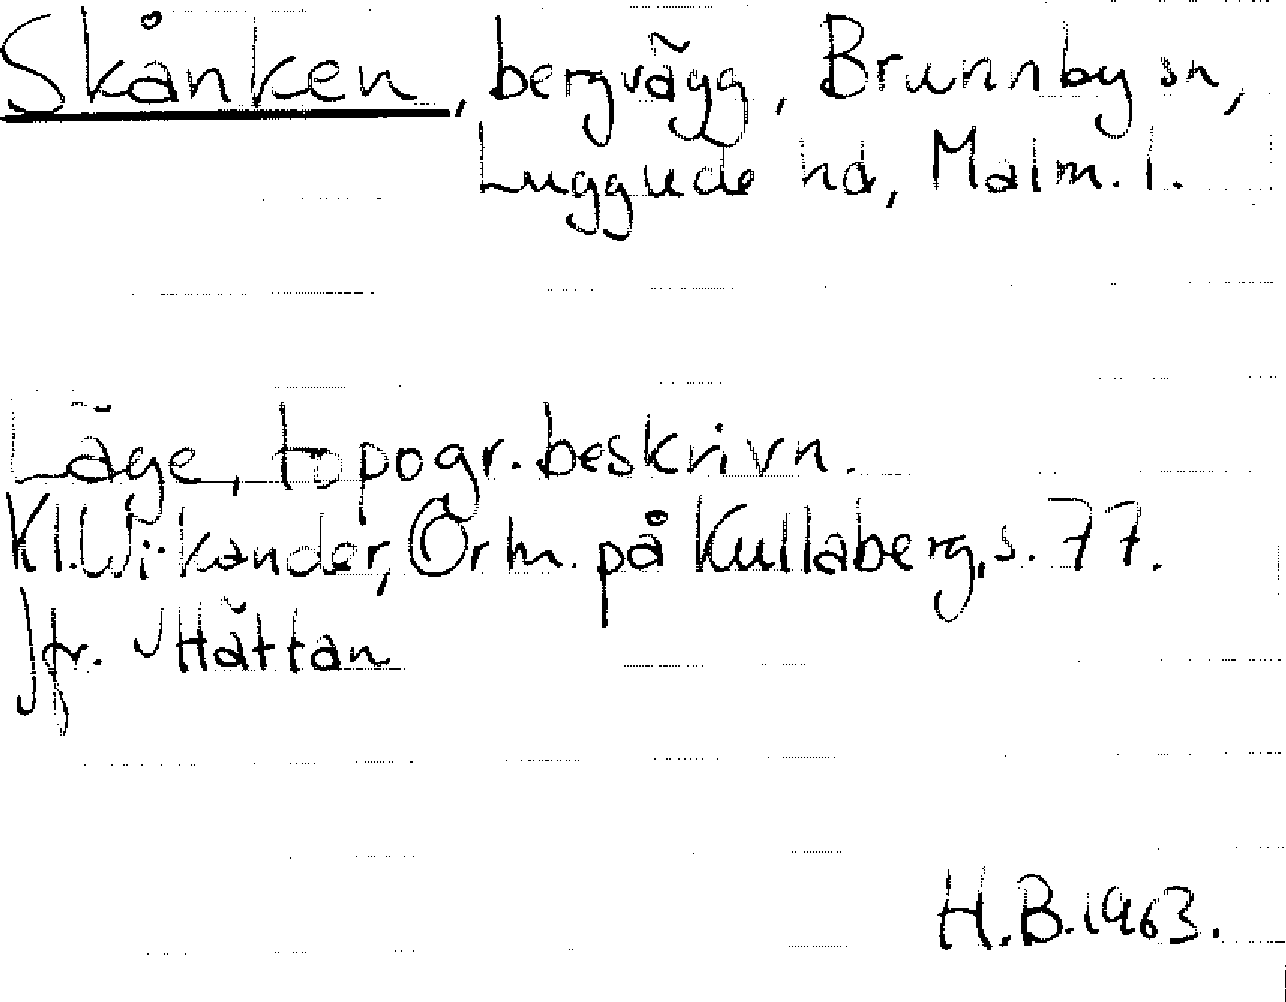 Skånken, bergvägg, Brunnby sn,
Luggude hd, Malm. l.
Läge, topogr. beskrivn.
Kl. Wikander, Ortn. på Kullaberg, s. 77.
Jfr. Hättan
H.B. 1963.